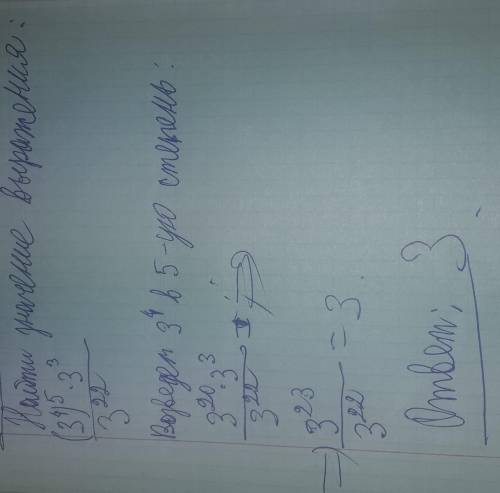 Найти значение выражения:
(3⁴)⁵ · 3³
3²²
Возведем 3⁴ в 5-ую степень:
3²⁰ · 3³
3²² = ⇒
⇒ 3²³
3²² = 3.
Ответ: 3.